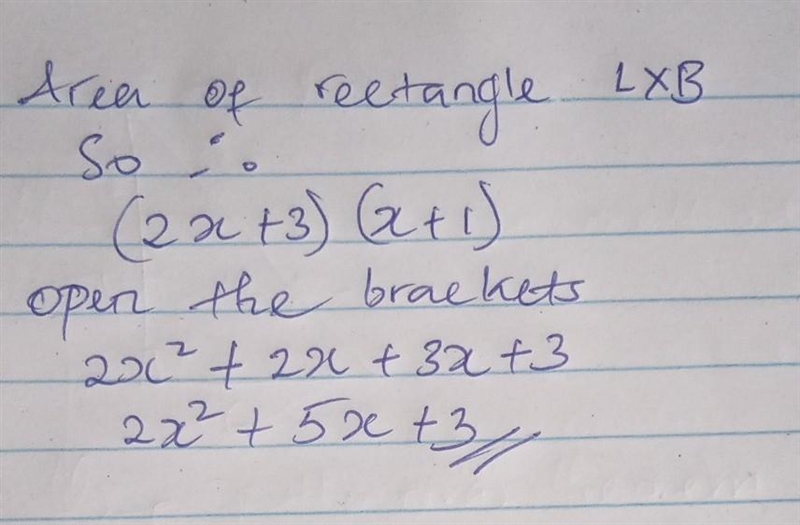 Area of rectangle L×B
So ∴
(2x+3) (x+1)
open the brackets
2x² + 2x + 3x + 3
2x² + 5x + 3